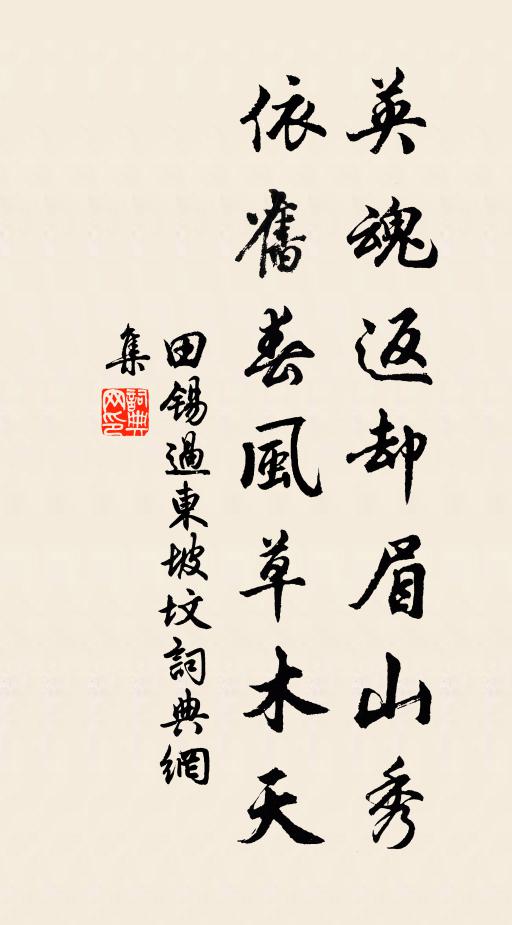 英魂返却眉山秀
依舊春風草木天
田錫過東坡墳詞典網
集
詞典網印